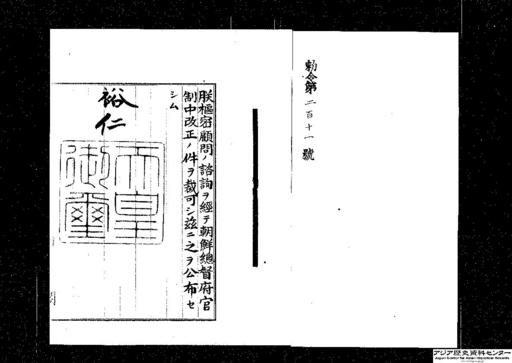 勅令第二百十一號
朕樞密顧問ノ諮詢ヲ經テ朝鮮總督府官
制中改正ノ件ヲ裁可シ茲ニ之ヲ公布セ
シム
裕仁
天皇
御璽
アジア歴史資料センター
Japan Center for Asian Historical Records